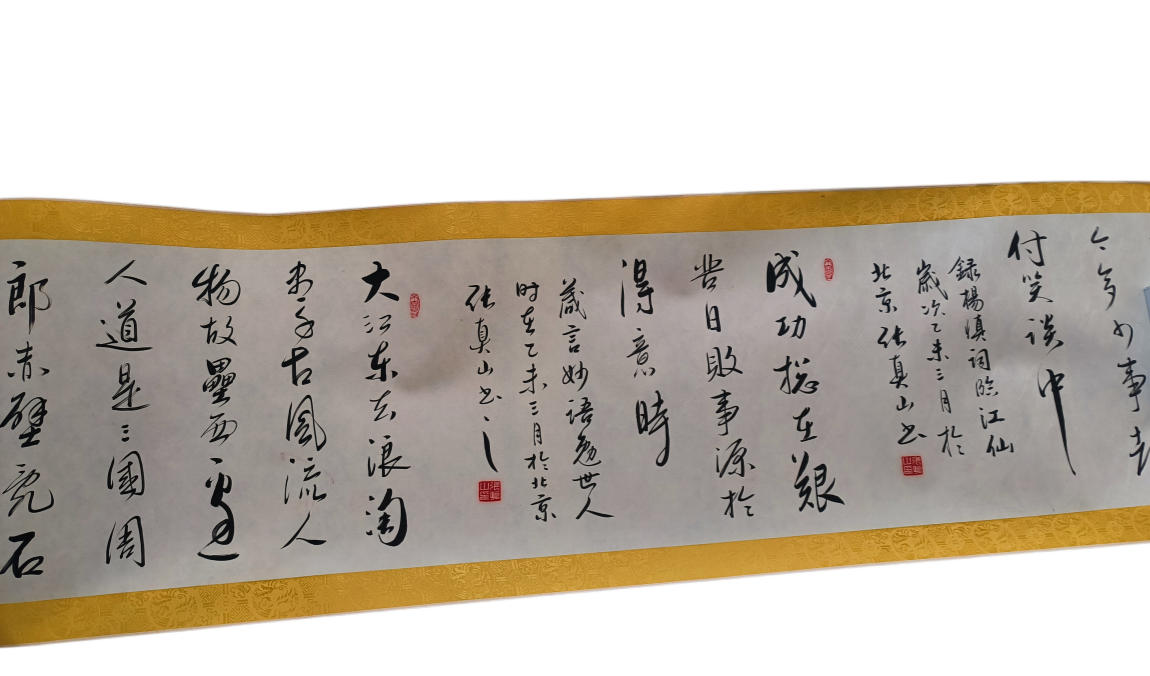 古今多少事都
付笑谈中
録楊慎词臨江仙
歲次乙未三月於
北京张真山书
成功總在艱
苦日敗事源於
得意時
箴言妙语勉世人
时在乙未三月於北京
张真山书之
大江东去浪淘
尽千古風流人
物故壘西邊
人道是三國周
郎赤壁乱石